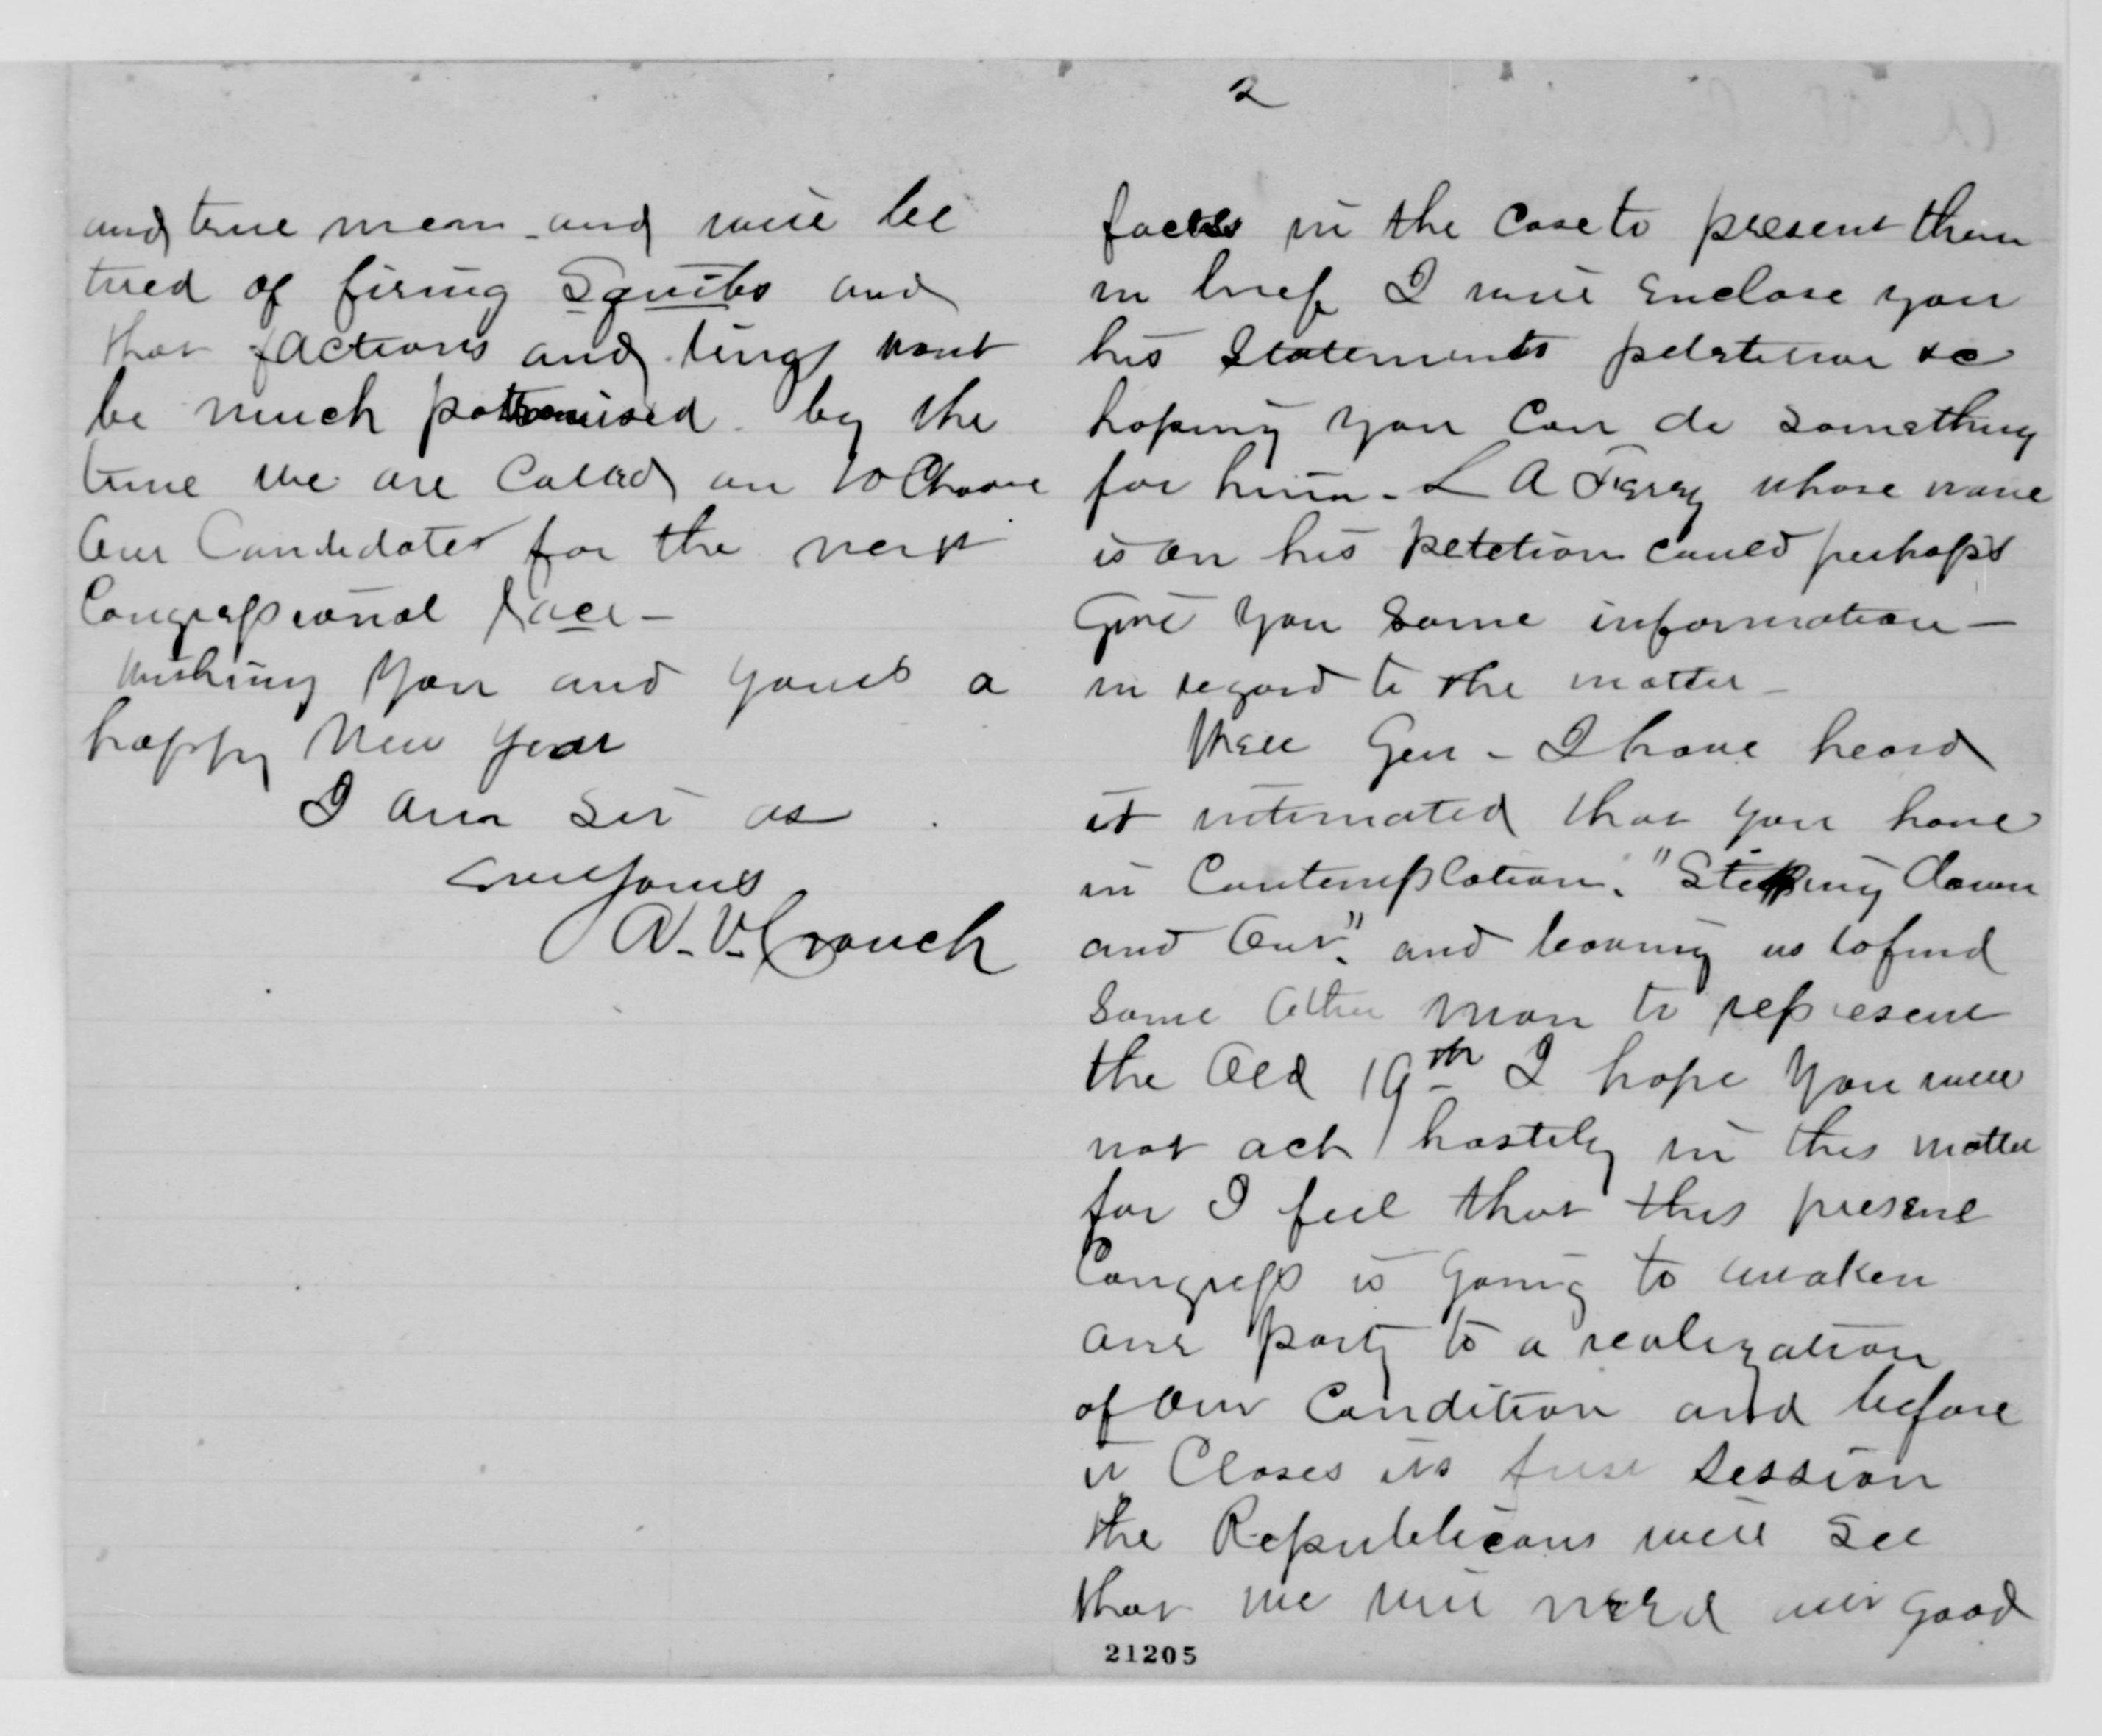 2
facts in the case to present them
in brief I will enclose you
his Statements petition &c
hoping you can do something
for him - L A Terry whose name
is on his petetion could perhaps
Give you some information -
in regard to the matter -
Well Gen - I have heard
it intimated that you have
in Contemplation. "Stepping down
and Out". and leaving us to find
some other man to represent
the Old 19th I hope you will
not act hastily in this matter
for I feel that this present
Congress is going to awaken
our party to a realization
of our Condition and before
it Closes its first session
the Republicans will see
that we will need our good
21205
and true men - and will be
tired of firing Squibs and
that factions and rings wont
be much patronised by the
time we are Called on to Choose
Our Candidates for the next
Congressional Race -
Wishing you and yours a
happy New Year
I am Sir as
Ever Yours
W. V. Crouch